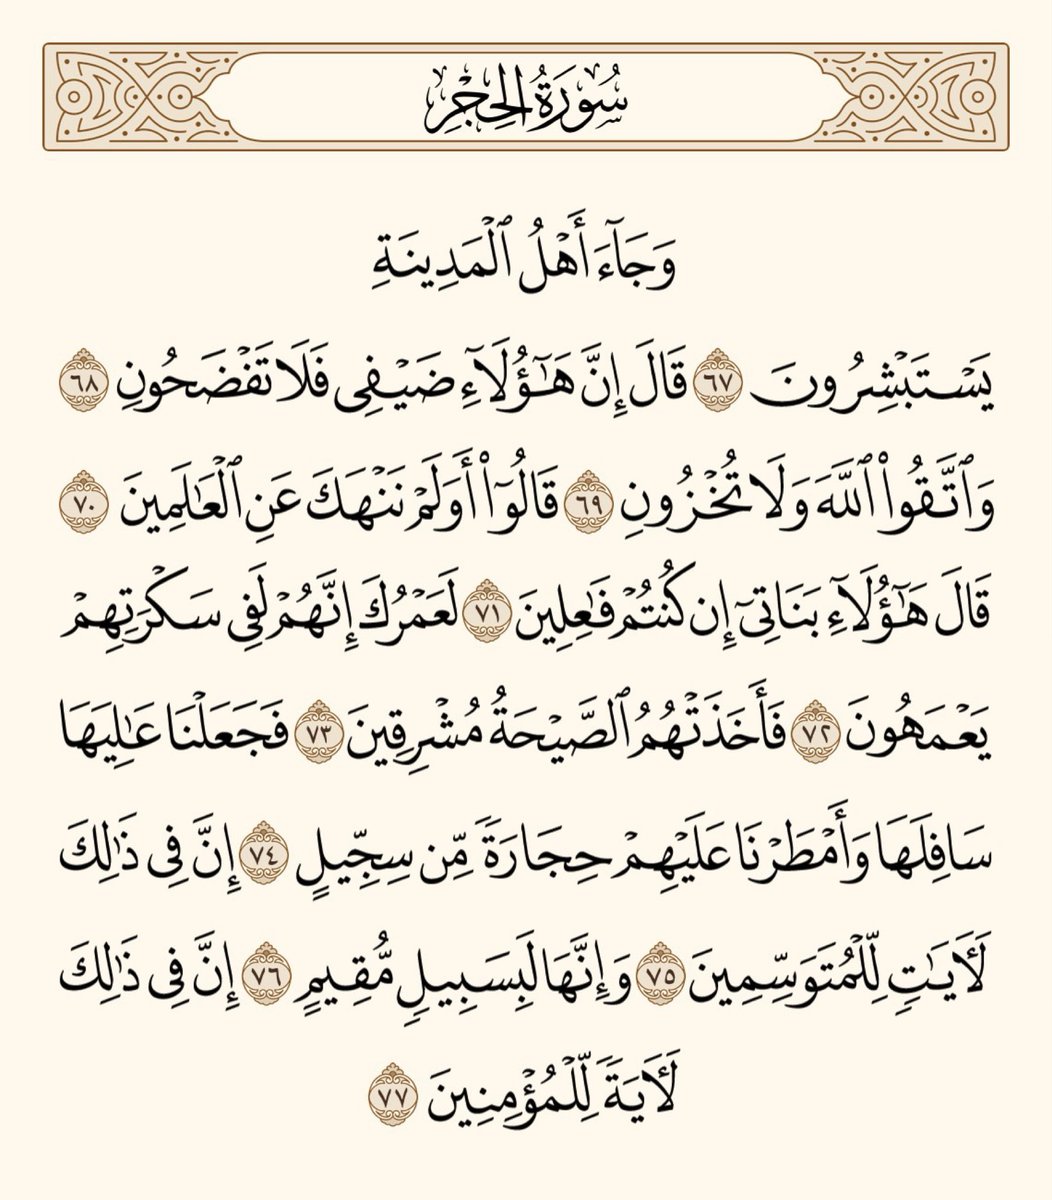 سُورَةُ الحِجْرِ
وَجَآءَ أَهْلُ ٱلْمَدِينَةِ
يَسْتَبْشِرُونَ ٦٧ قَالَ إِنَّ هَٰٓؤُلَآءِ ضَيْفِى فَلَا تَفْضَحُونِ ٦٨
وَٱتَّقُوا۟ ٱللَّهَ وَلَا تُخْزُونِ ٦٩ قَالُوٓا۟ أَوَلَمْ نَنْهَكَ عَنِ ٱلْعَٰلَمِينَ ٧٠
قَالَ هَٰٓؤُلَآءِ بَنَاتِىٓ إِن كُنتُمْ فَٰعِلِينَ ٧١ لَعَمْرُكَ إِنَّهُمْ لَفِى سَكْرَتِهِمْ
يَعْمَهُونَ ٧٢ فَأَخَذَتْهُمُ ٱلصَّيْحَةُ مُشْرِقِينَ ٧٣ فَجَعَلْنَا عَٰلِيَهَا
سَافِلَهَا وَأَمْطَرْنَا عَلَيْهِمْ حِجَارَةً مِّن سِجِّيلٍ ٧٤ إِنَّ فِى ذَٰلِكَ
لَءَايَٰتٍ لِّلْمُتَوَسِّمِينَ ٧٥ وَإِنَّهَا لَبِسَبِيلٍ مُّقِيمٍ ٧٦ إِنَّ فِى ذَٰلِكَ
لَءَايَةً لِّلْمُؤْمِنِينَ ٧٧